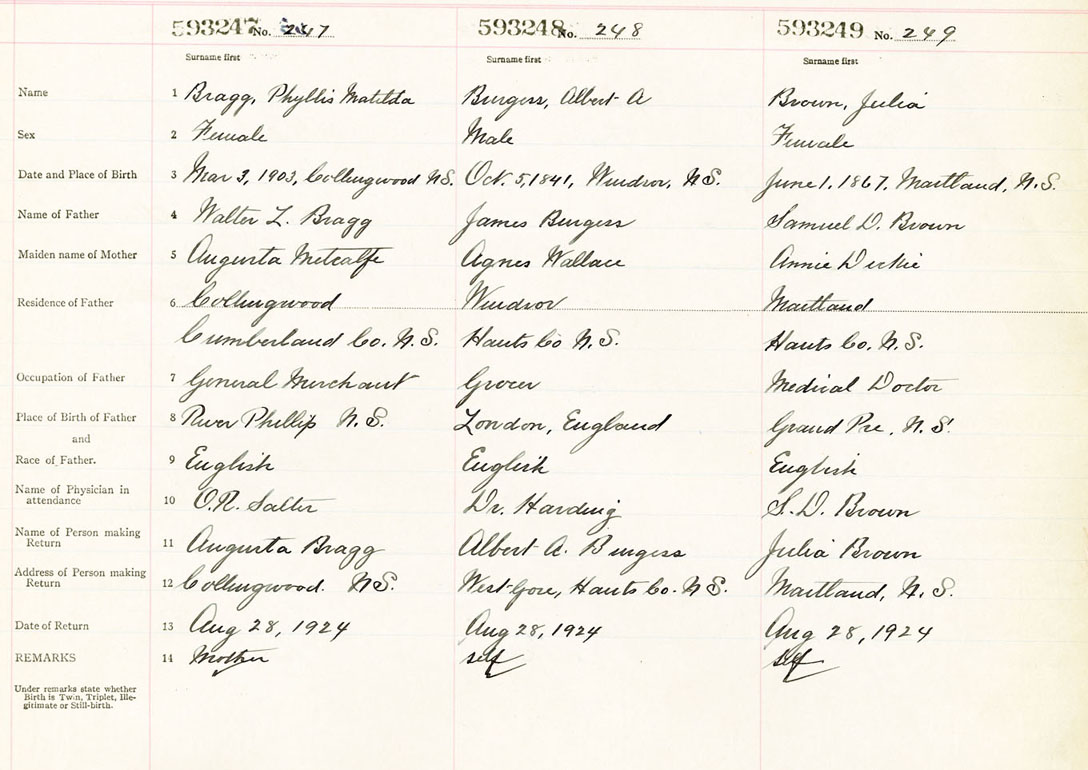 593247 No. 247 593248 No. 248 593249 No. 249
Surname first Surname first Surname first
Name 1 Bragg, Phyllis Matilda Burgess, Albert A Brown, Julia
Sex 2 Female Male Female
Date and Place of Birth 3 Mar 3, 1903, Collingwood N.S. Oct. 5, 1841, Windsor, N.S. June 1, 1867, Maitland, N.S.
Name of Father 4 Walter L. Bragg James Burgess Samuel D. Brown
Maiden name of Mother 5 Augusta Metcalfe Agnes Wallace Annie Dickie
Residence of Father 6 Collingwood Windsor Maitland
Cumberland Co. N.S. Hants Co N.S. Hants Co. N.S.
Occupation of Father 7 General Merchant Grocer Medical Doctor
Place of Birth of Father 8 River Phillip N.S. London, England Grand Pre, N.S.
and
Race of Father. 9 English English English
Name of Physician in
attendance 10 O.R. Salter Dr. Harding S.D. Brown
Name of Person making
Return 11 Augusta Bragg Albert A. Burgess Julia Brown
Address of Person making
Return 12 Collingwood. N.S. West Gore, Hants Co. N.S. Maitland, N.S.
Date of Return 13 Aug 28, 1924 Aug 28, 1924 Aug 28, 1924
REMARKS 14 Mother self self
Under remarks state whether
Birth is Twin, Triplet, Ille-
gitimate or Still-birth.